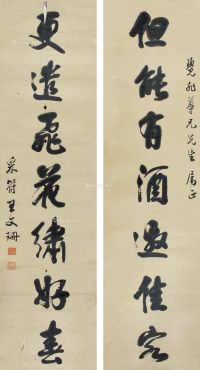 覺非尊兄先生屬正
但能有酒邀佳客
更遣飛花繡好春
采符王文珊